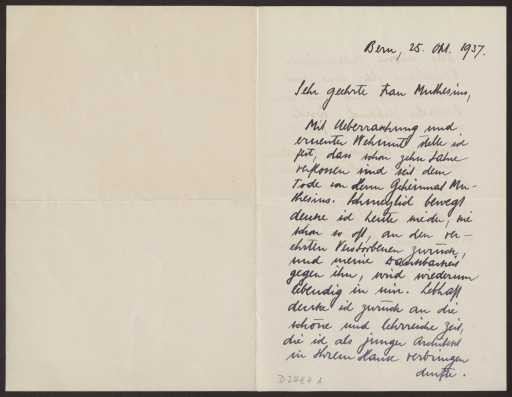 Bern, 25. Okt. 1937.
Sehr geehrte Frau Muthesius,
Mit Ueberraschung und
erneuter Wehmut stelle ich
fest, dass schon zehn Jahre
verflossen sind seit dem
Tode von Herrn Geheimrat Mu-
thesius. Schmerzlich bewegt
denke ich heute wieder, wie
schon so oft, an den ver-
ehrten Verstorbenen zurück,
und meine Dankbarkeit
gegen ihn, wird wiederum
lebendig in mir. Lebhaft
denke ich zurück an die
schöne und lehrreiche Zeit,
die ich als junger Architekt
in Ihrem Hause verbringen
durfte.